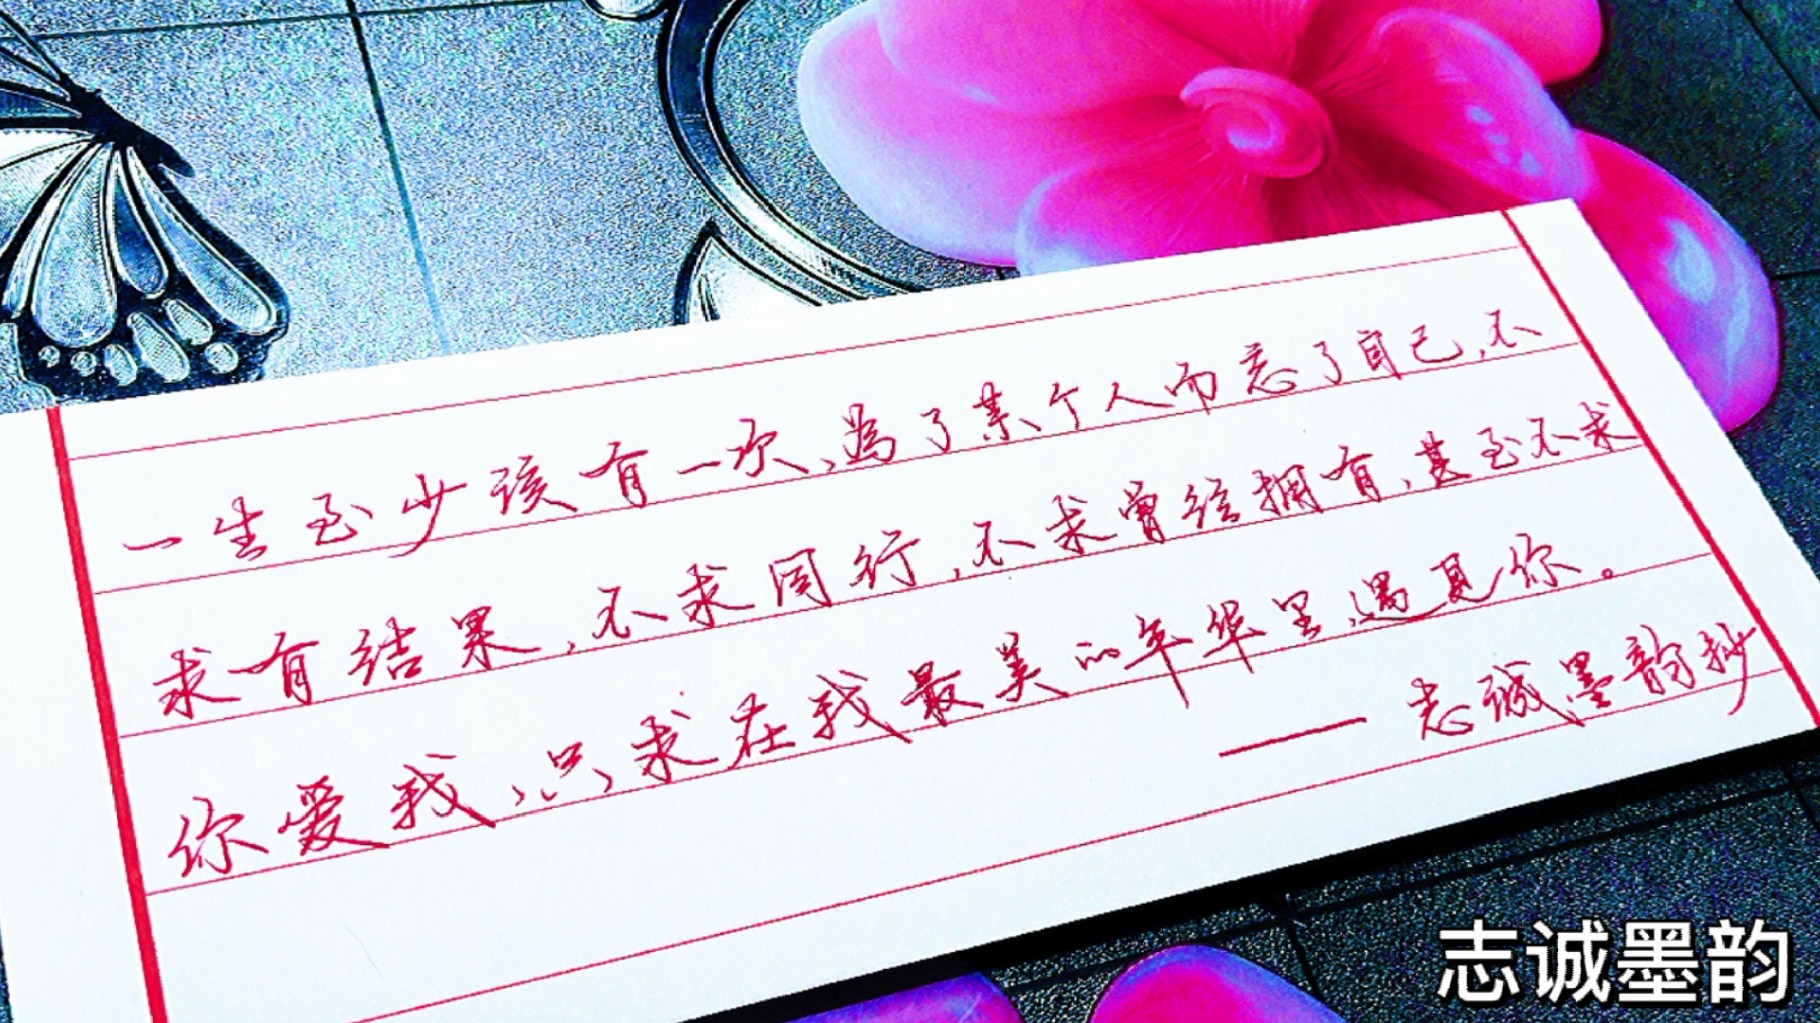 一生至少该有一次,為了某个人而忘了自己,不
求有结果,不求同行,不求曾经拥有,甚至不求
你爱我,只求在我最美的年华里,遇见你。
——志诚墨韵抄
志诚墨韵